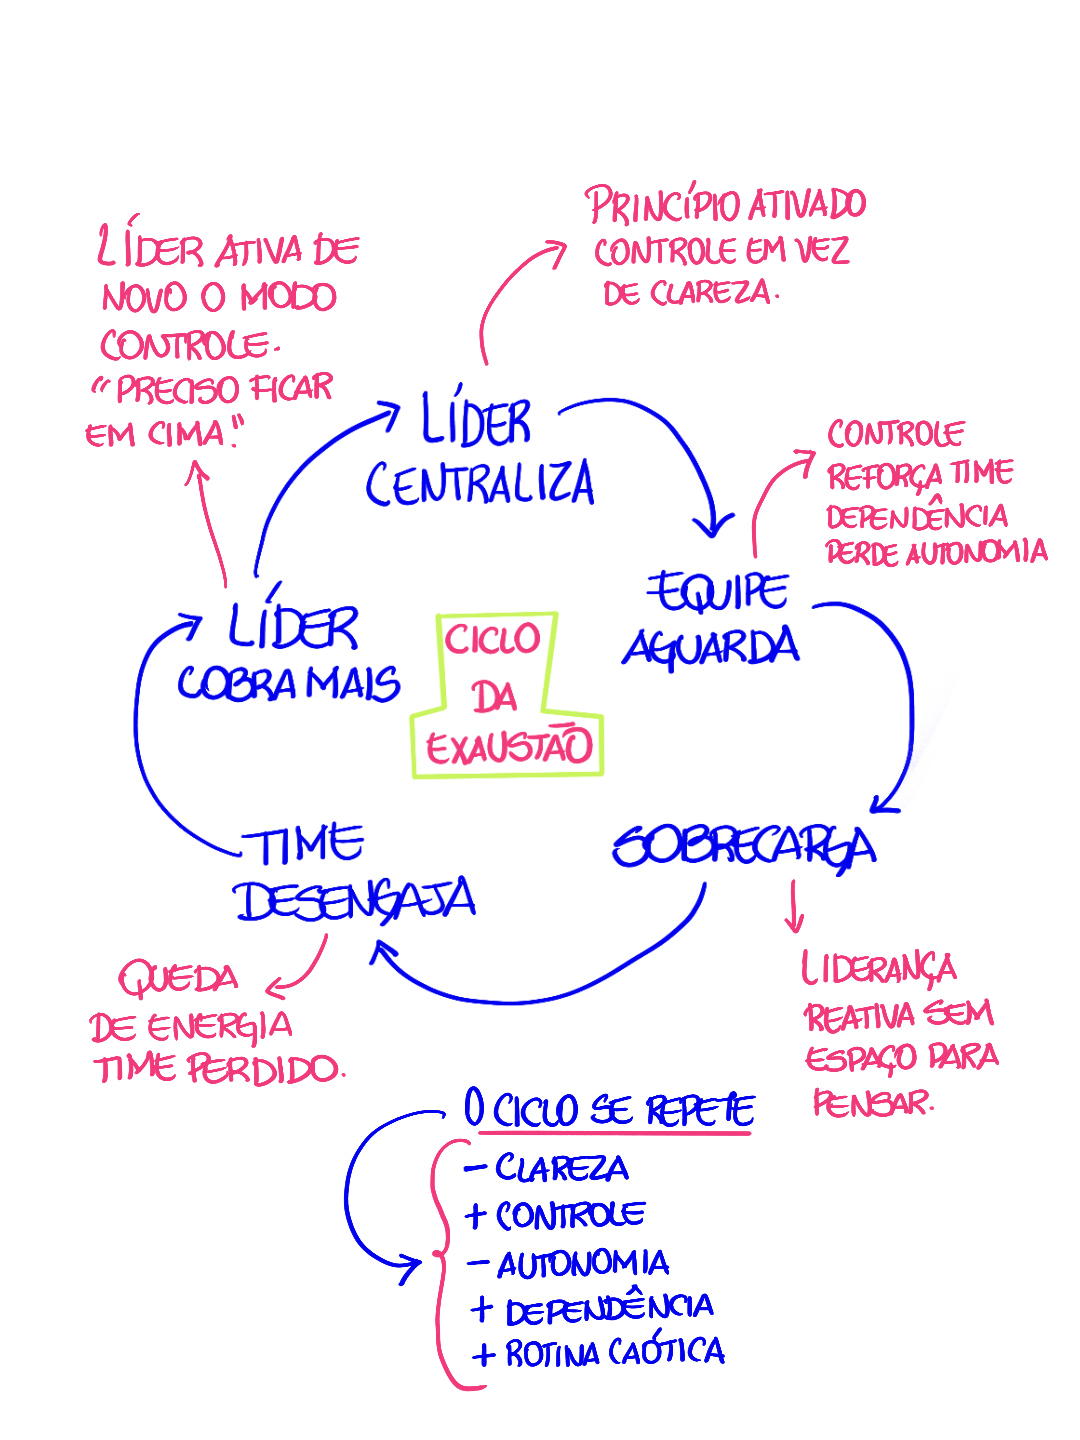 PRINCÍPIO ATIVADO
CONTROLE EM VEZ
DE CLAREZA.
LÍDER ATIVA DE
NOVO O MODO
CONTROLE.
"PRECISO FICAR
EM CIMA."
LÍDER
CENTRALIZA
CONTROLE
REFORÇA TIME
DEPENDÊNCIA
PERDE AUTONOMIA
EQUIPE
AGUARDA
LÍDER
COBRA MAIS
CICLO
DA
EXAUSTÃO
SOBRECARGA
TIME
DESENGAJA
LIDERANÇA
REATIVA SEM
ESPAÇO PARA
PENSAR.
QUEDA
DE ENERGIA
TIME PERDIDO.
O CICLO SE REPETE
- CLAREZA
+ CONTROLE
- AUTONOMIA
+ DEPENDÊNCIA
+ ROTINA CAÓTICA